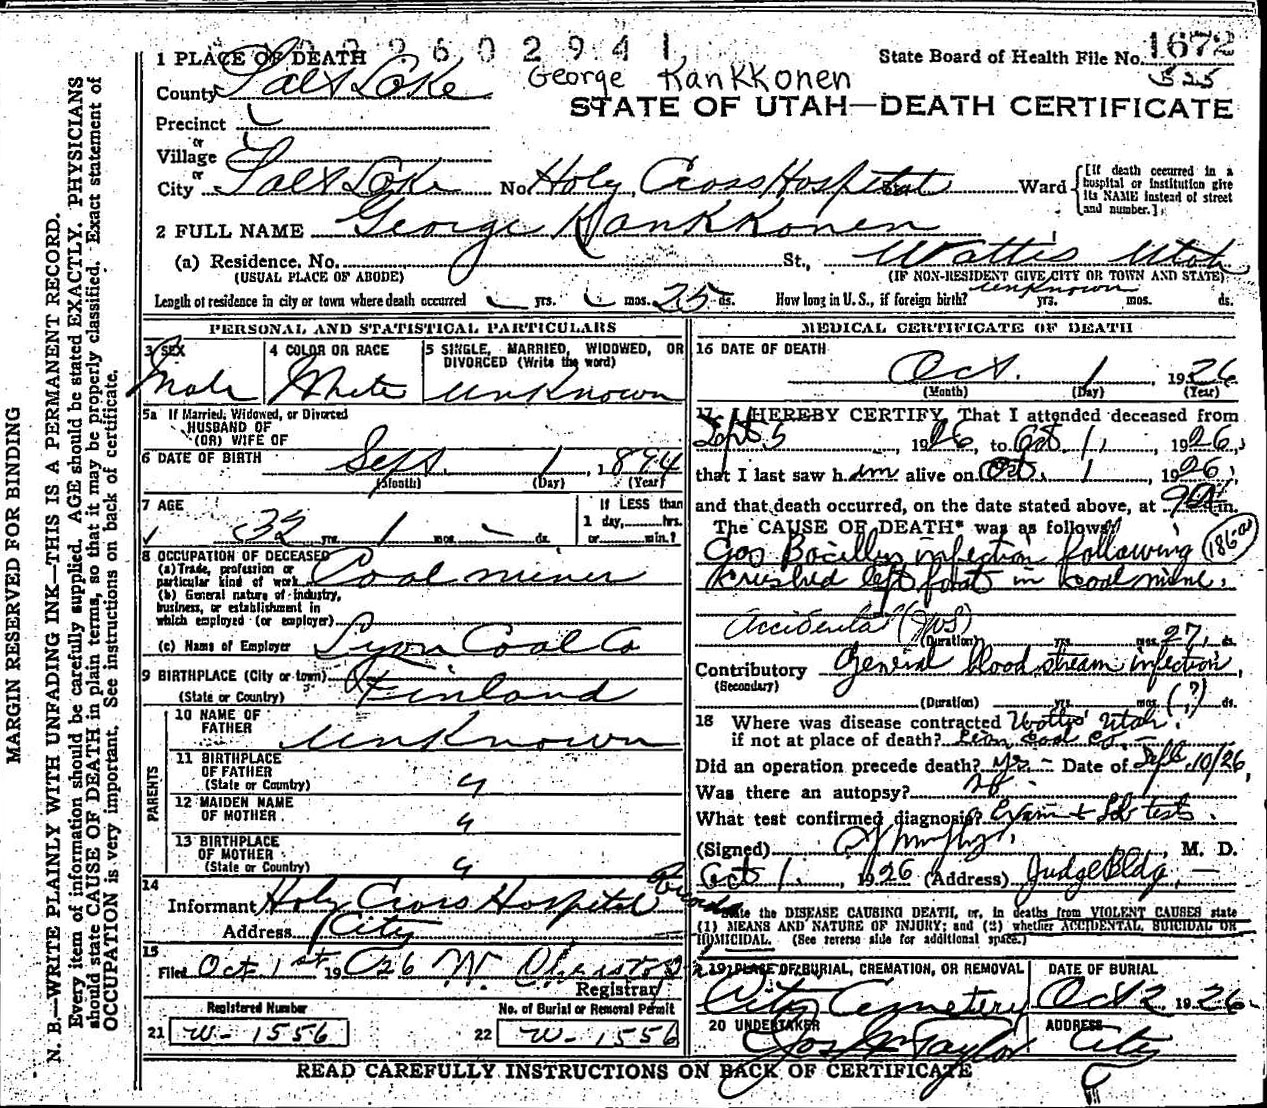 002602941
1 PLACE OF DEATH
State Board of Health File No. 1672
525
George Kankkonen
County Salt Lake
STATE OF UTAH—DEATH CERTIFICATE
Precinct
or
Village
or
City Salt Lake No. Holy Cross Hospital Ward
[If death occurred in a
hospital or institution give
its NAME instead of street
and number.]
2 FULL NAME George Kankkonen
(a) Residence, No. St., Wattis Utah
(USUAL PLACE OF ABODE) (IF NON-RESIDENT GIVE CITY OR TOWN AND STATE)
Length of residence in city or town where death occurred yrs. mos. 25 ds. How long in U. S., if foreign birth? unknown yrs. mos. ds.
PERSONAL AND STATISTICAL PARTICULARS
3 SEX 4 COLOR OR RACE 5 SINGLE, MARRIED, WIDOWED, OR
DIVORCED (Write the word)
Male White unknown
5a If Married, Widowed, or Divorced
HUSBAND OF
(OR) WIFE OF
6 DATE OF BIRTH Sept. 1, 1894
(Month) (Day) (Year)
7 AGE If LESS than
1 day, hrs.
32 yrs. 1 mos. - ds. or min.?
8 OCCUPATION OF DECEASED
(a) Trade, profession or
particular kind of work Coal miner
(b) General nature of industry,
business, or establishment in
which employed (or employer)
(c) Name of Employer Lyon Coal Co
9 BIRTHPLACE (City or town)
(State or Country) Finland
PARENTS
10 NAME OF
FATHER unknown
11 BIRTHPLACE
OF FATHER
(State or Country) "
12 MAIDEN NAME
OF MOTHER "
13 BIRTHPLACE
OF MOTHER
(State or Country) "
14
Informant Holy Cross Hospital Records
Address City
15
Filed Oct 1st 1926 W.
Registrar
Registered Number No. of Burial or Removal Permit
21 W-1556 22 W-1556
MEDICAL CERTIFICATE OF DEATH
16 DATE OF DEATH
Oct. 1, 1926
(Month) (Day) (Year)
17 I HEREBY CERTIFY, That I attended deceased from
Sept 5 1926, to Oct. 1, 1926,
that I last saw him alive on Oct. 1 1926,
and that death occurred, on the date stated above, at 9 a.m.
The CAUSE OF DEATH* was as follows:
Gas Bacillus infection following
krushed left foot in koal mine.
186
Accidental
(Duration) yrs. mos. 27 ds.
Contributory General blood stream infection,
(Secondary)
(Duration) yrs. mos. (?) ds.
18 Where was disease contracted Wattis Utah.
if not at place of death? Lion Coal Co.
Did an operation precede death? yes. - Date of Sept. 10/26,
Was there an autopsy? no
What test confirmed diagnosis? Exam + Lab tests.
(Signed) Murphy, M. D.
Oct 1, 1926 (Address) Judge Bldg, -
*State the DISEASE CAUSING DEATH, or, in deaths from VIOLENT CAUSES state
(1) MEANS AND NATURE OF INJURY; and (2) whether ACCIDENTAL, SUICIDAL OR
HOMICIDAL. (See reverse side for additional space.)
19 PLACE OF BURIAL, CREMATION, OR REMOVAL DATE OF BURIAL
City Cemetery Oct 2 1926
20 UNDERTAKER ADDRESS
Jos. Taylor City
READ CAREFULLY INSTRUCTIONS ON BACK OF CERTIFICATE
MARGIN RESERVED FOR BINDING
N. B.—WRITE PLAINLY WITH UNFADING INK—THIS IS A PERMANENT RECORD.
Every item of information should be carefully supplied. AGE should be stated EXACTLY. PHYSICIANS
should state CAUSE OF DEATH in plain terms, so that it may be properly classified. Exact statement of
OCCUPATION is very important. See instructions on back of certificate.